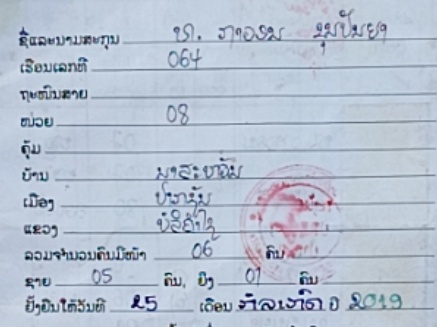 ຊື່ແລະນາມສະກຸນ ທ.
ເຮືອນເລກທີ 064
ຖະໜົນສາຍ
ໜ່ວຍ 08
ຄຸ້ມ
ບ້ານ
ເມືອງ ປາກຊັນ
ແຂວງ ບໍລິຄຳໄຊ
ລວມຈຳນວນຄົນມີໜ້າ 06 ຄົນ
ຊາຍ 05 ຄົນ, ຍິງ 01 ຄົນ
ຢັ້ງຢືນໃຫ້ວັນທີ 25 ເດືອນ ກໍລະກົດ ປີ 2019